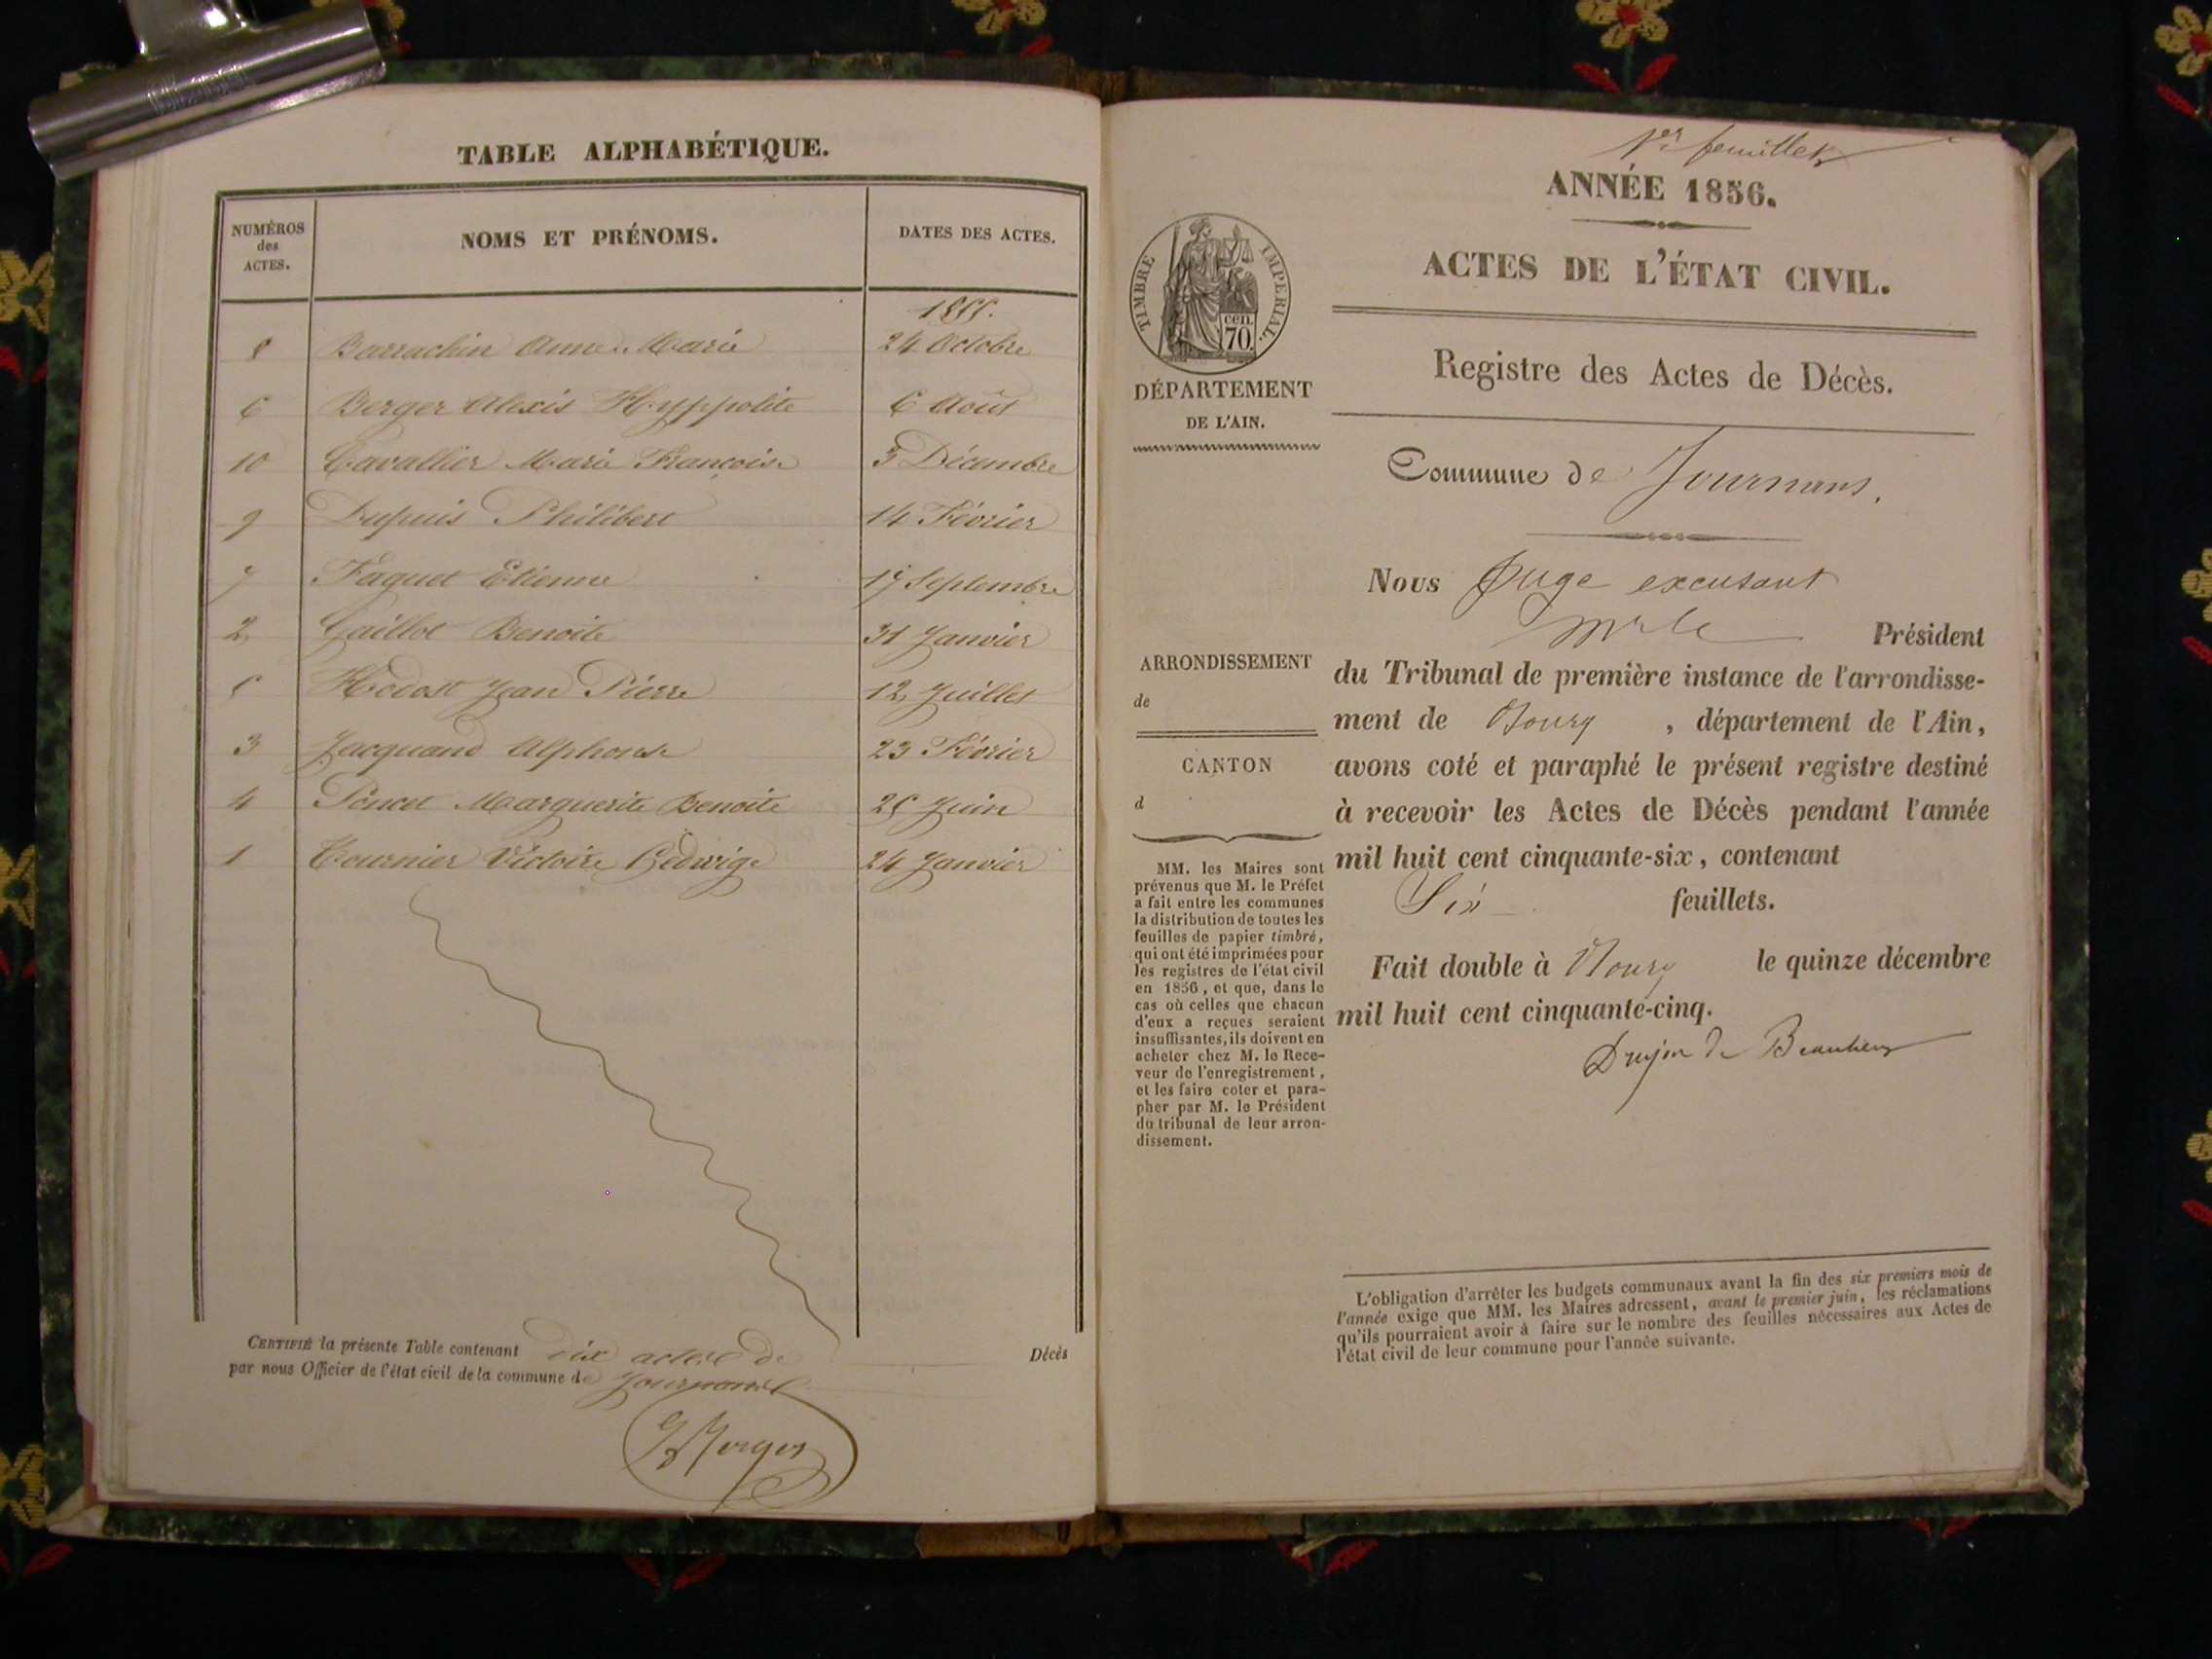 TABLE ALPHABÉTIQUE.
NUMÉROS des ACTES. NOMS ET PRÉNOMS. DATES DES ACTES.
1855.
8 Barrachin Anne Marie 24 Octobre
6 Berger Alexis Hyppolite 6 Août
10 Cavallier Marie Françoise 3 Décembre
9 Dupuis Philibert 14 Février
7 Faquet Etienne 17 Septembre
2 Gaillot Benoite 31 Janvier
5 Hodost Jean Pierre 12 Juillet
3 Jacquand Alphonse 23 Février
4 Poncet Marguerite Benoite 25 Juin
1 Tournier Victoire Hedwige 24 Janvier
CERTIFIÉ la présente Table contenant dix actes de Décès
par nous Officier de l'état civil de la commune de Journans
1er feuillet
ANNÉE 1856.
ACTES DE L'ÉTAT CIVIL.
TIMBRE IMPERIAL.
cen. 70.
DÉPARTEMENT
DE L'AIN.
Registre des Actes de Décès.
Commune de Journans.
Nous Juge excusant
Mr le Président
du Tribunal de première instance de l'arrondisse-
ment de Bourg, département de l'Ain,
avons coté et paraphé le présent registre destiné
à recevoir les Actes de Décès pendant l'année
mil huit cent cinquante-six, contenant
Six feuillets.
Fait double à Bourg le quinze décembre
mil huit cent cinquante-cinq.
Drujon de Beaulieu
ARRONDISSEMENT
de
CANTON
d
MM. les Maires sont
prévenus que M. le Préfet
a fait entre les communes
la distribution de toutes les
feuilles de papier timbré,
qui ont été imprimées pour
les registres de l'état civil
en 1856, et que, dans le
cas où celles que chacun
d'eux a reçues seraient
insuffisantes, ils doivent en
acheter chez M. le Rece-
veur de l'enregistrement,
et les faire coter et para-
pher par M. le Président
du tribunal de leur arron-
dissement.
L'obligation d'arrêter les budgets communaux avant la fin des six premiers mois de
l'année exige que MM. les Maires adressent, avant le premier juin, les réclamations
qu'ils pourraient avoir à faire sur le nombre des feuilles nécessaires aux Actes de
l'état civil de leur commune pour l'année suivante.